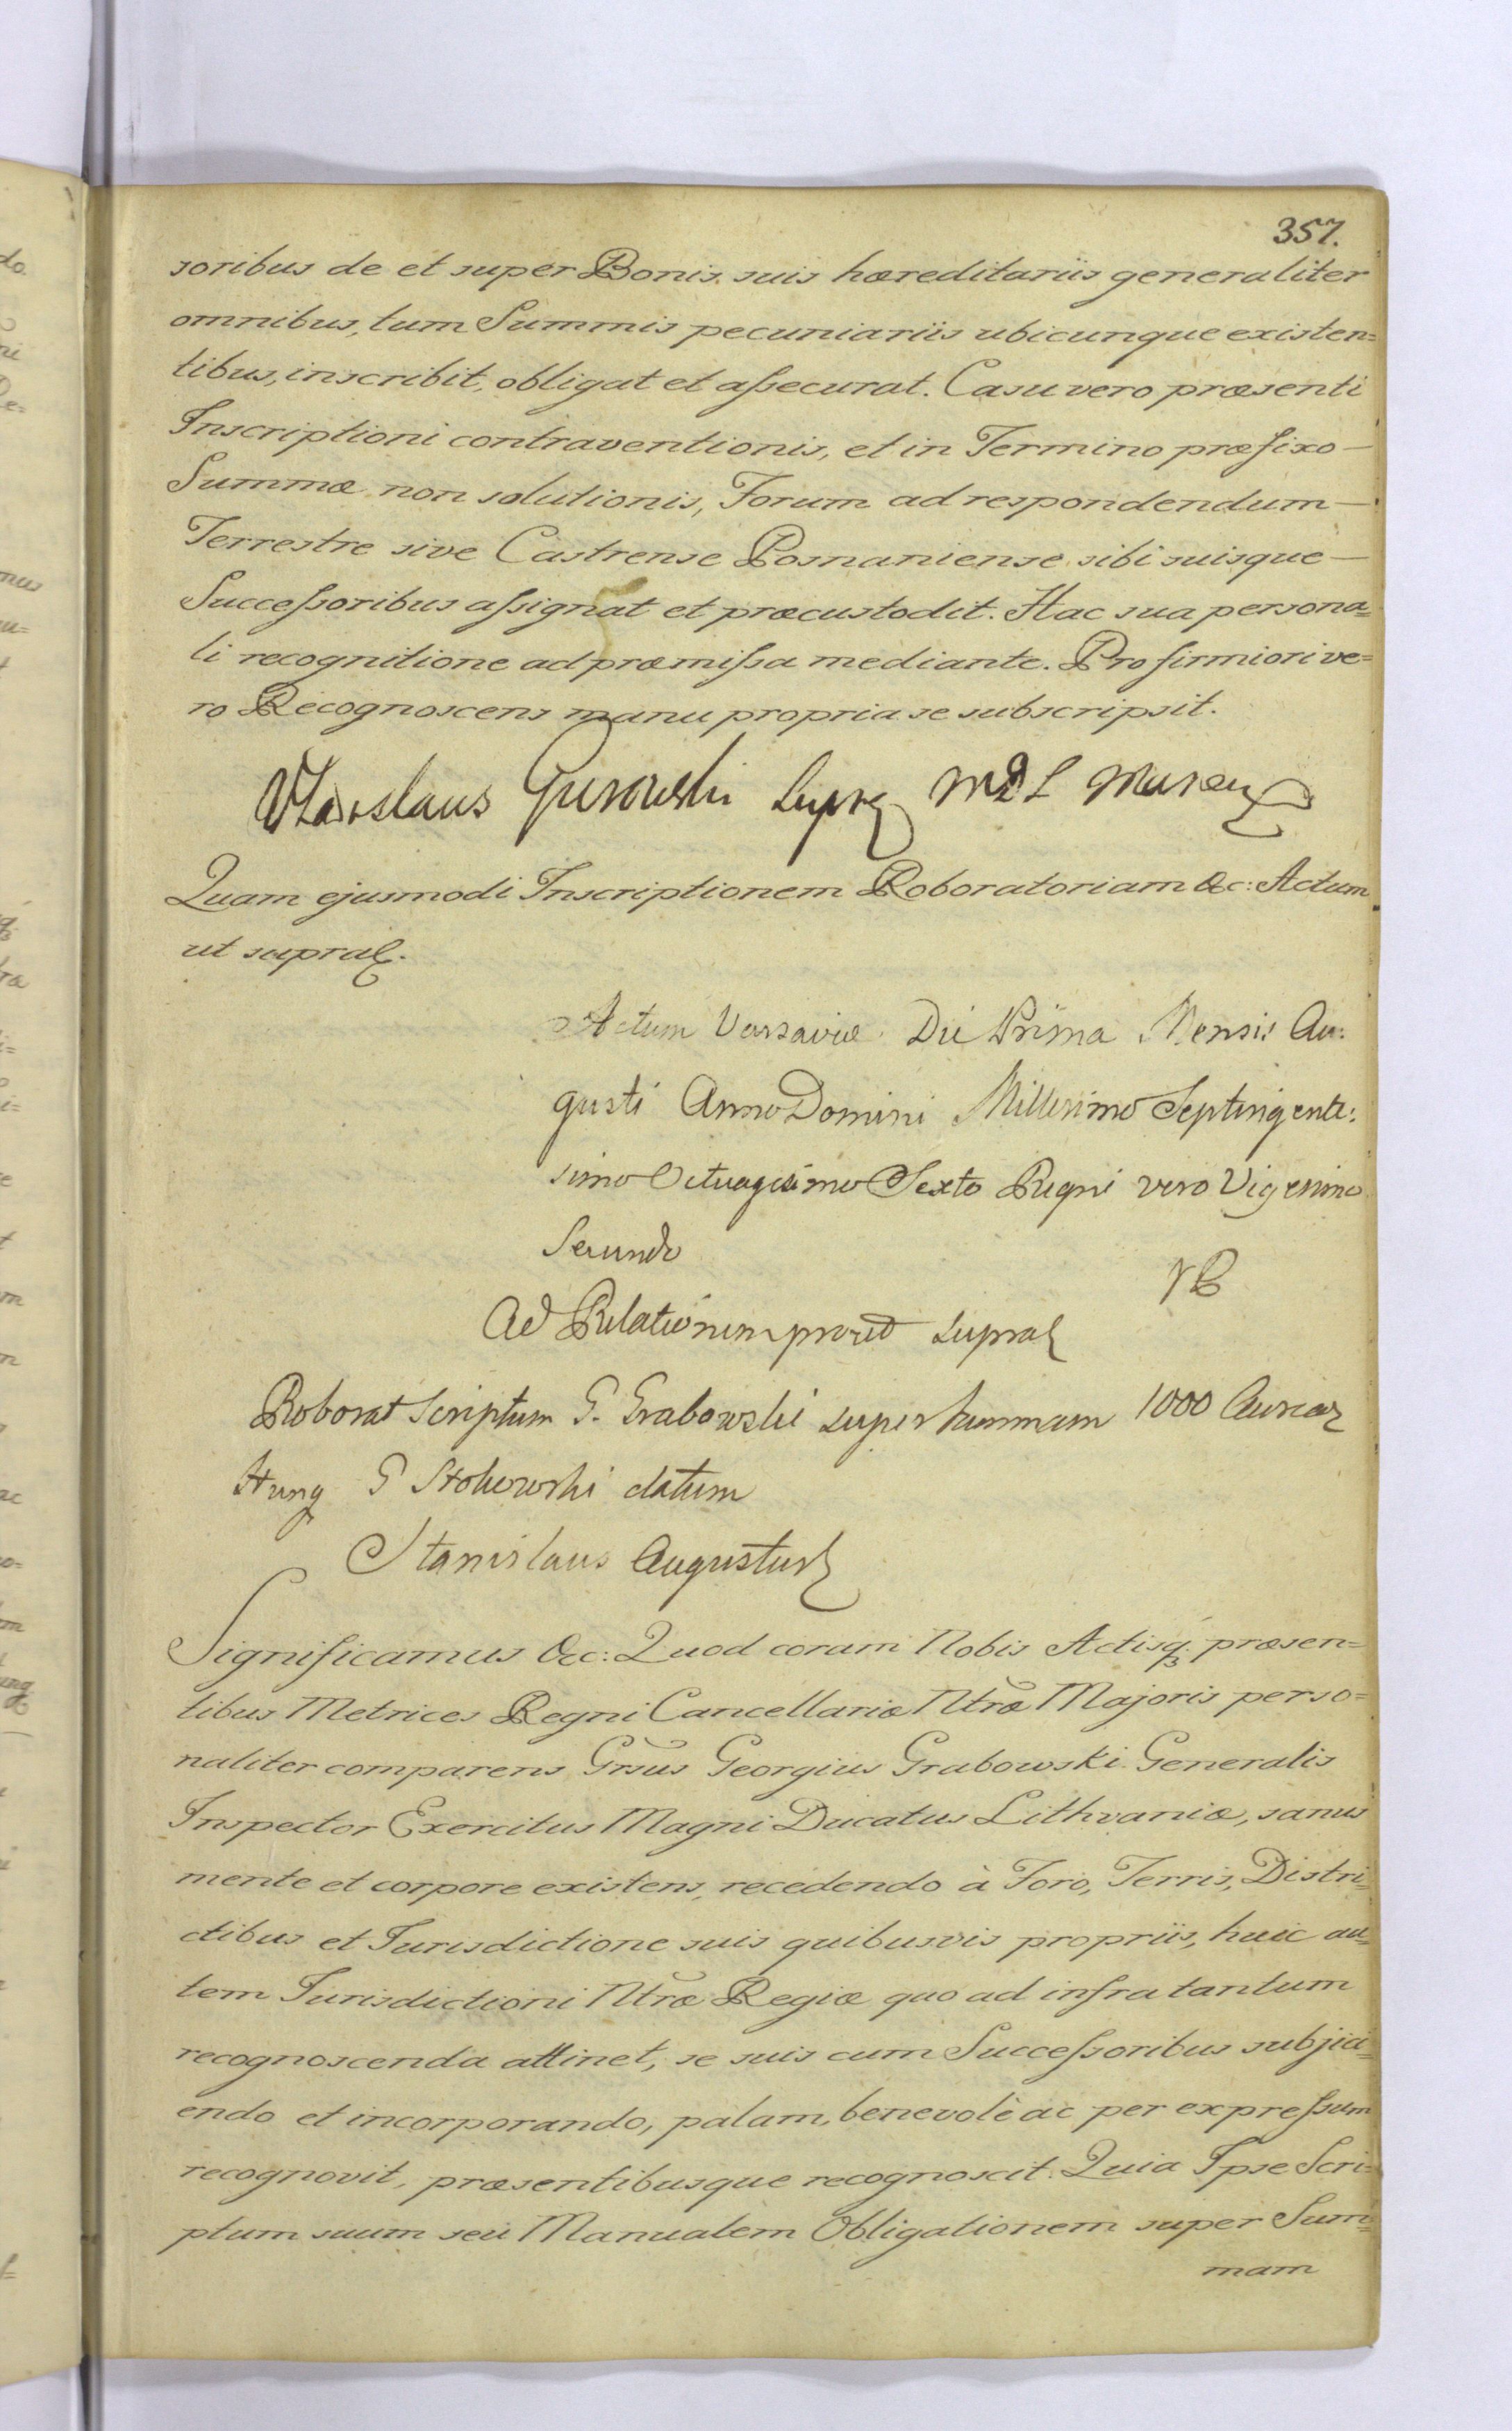 357.
soribus de et super Bonis suis hæreditariis generaliter
omnibus, tum Summis pecuniariis ubicunque existen=
tibus, inscribit, obligat et aſsecurat. Casu vero præsenti
Inscriptioni contraventionis, et in Termino præfixo —
Summæ non solutionis, Forum ad respondendum —
Terrestre sive Castrense Posnaniense sibi suisque —
Succeſsoribus aſsignat et præcustodit. Hac sua persona=
li recognitione ad præmiſsa mediante. Pro firmiori ve=
ro Recognoscens manu propria se subscripsit.
Vladislaus Gurowski
Quam ejusmodi Inscriptionem Roboratoriam &c: Actum
ut supra.
Actum Varsaviæ Die Prima Mensis Au:
gusti Anno Domini Millesimo Septingente:
simo Octuagesimo Sexto Regni vero Vigesimo
Secundo
Ad Relationem prout supra
Roborat Scriptum G. Grabowski super summam 1000 Aureor
Hung G Stokowski datum
Stanislaus Augustus
Significamus &c: Quod coram Nobis Actisq; præsen=
tibus Metrices Regni Cancellariæ Ntræ Majoris perso=
naliter comparens Grsus Georgius Grabowski Generalis
Inspector Exercitus Magni Ducatus Lithvaniæ, sanus
mente et corpore existens, recedendo à Foro, Terris, Distri=
ctibus et Jurisdictione suis quibusvis propriis, huic au=
tem Jurisdictioni Ntræ Regiæ quo ad infra tantum
recognoscenda attinet, se suis cum Succeſsoribus subjici=
endo et incorporando, palam, benevolè ac per expreſsum
recognovit, præsentibusque recognoscit. Quia Ipse Scri=
ptum suum seu Manualem Obligationem super Sum=
mam